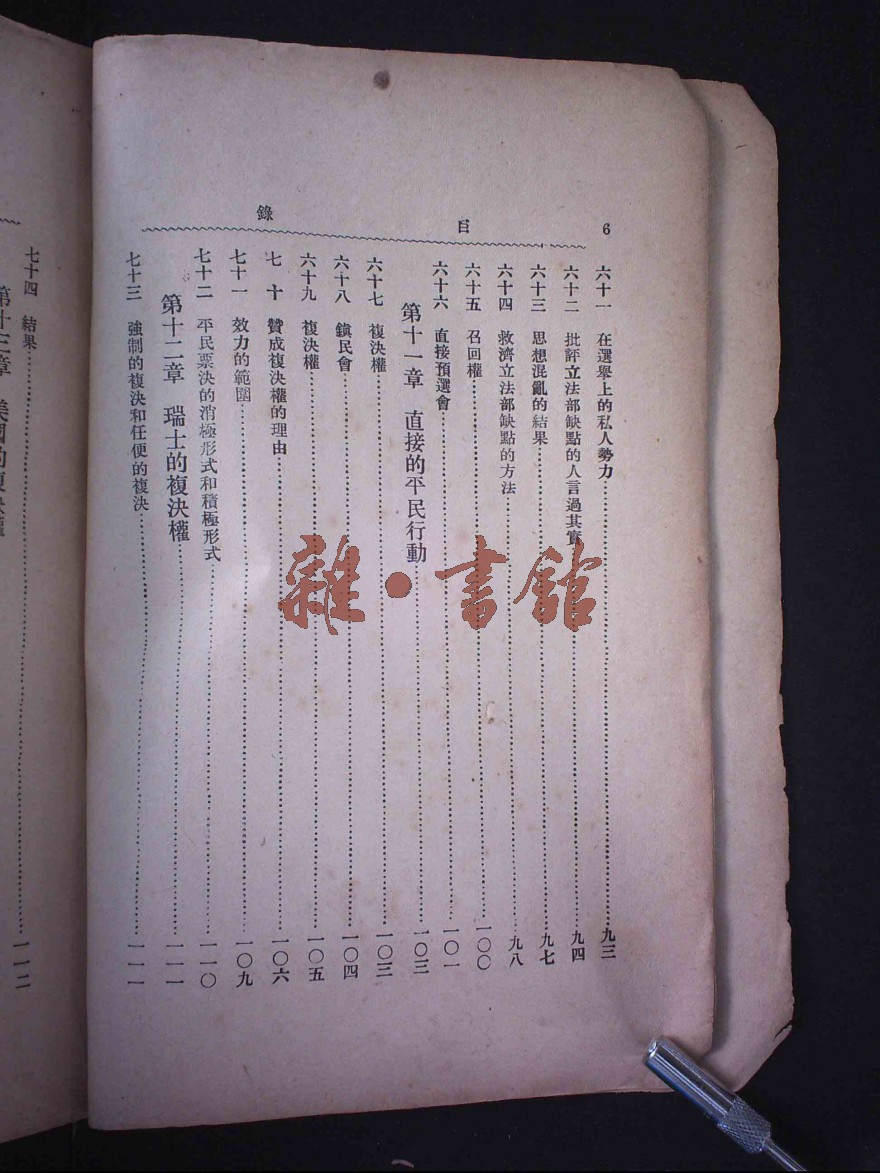 6
目錄
六十一 在選舉上的私人勢力……九三
六十二 批評立法部缺點的人言過其實……九四
六十三 思想混亂的結果……九七
六十四 救濟立法部缺點的方法……九八
六十五 召回權……一〇〇
六十六 直接預選會……一〇一
第十一章 直接的平民行動……一〇三
六十七 複決權……一〇三
六十八 鎭民會……一〇四
六十九 複決權……一〇五
七十 贊成複決權的理由……一〇六
七十一 效力的範圍……一〇九
七十二 平民票決的消極形式和積極形式……一一〇
第十二章 瑞士的複決權……一一一
七十三 強制的複決和任便的複決……一一一
七十四 結果……一一二
第十三章 美國的複決權
雜·書館